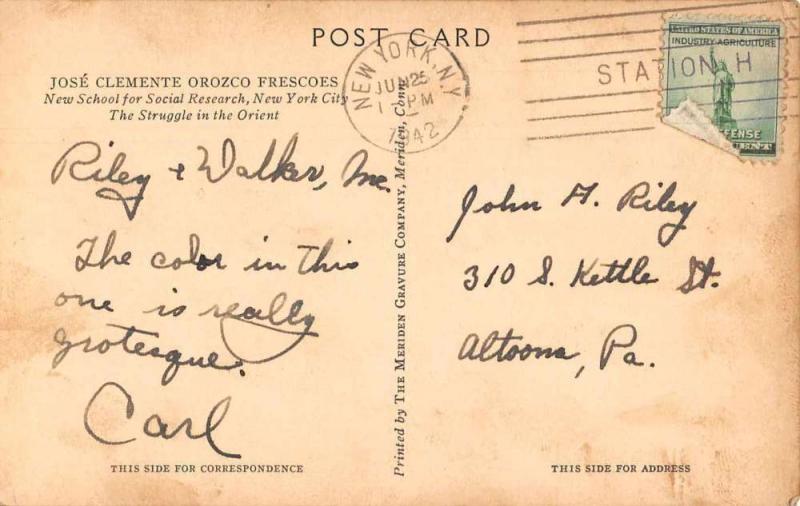 POST CARD
JOSÉ CLEMENTE OROZCO FRESCOES
New School for Social Research, New York City
The Struggle in the Orient
NEW YORK, N.Y.
JUN 25
1 PM
1942
STATION H
UNITED STATES OF AMERICA
INDUSTRY AGRICULTURE
Riley & Walker, Inc.
The color in this
one is really
grotesque.
Carl
Printed by THE MERIDEN GRAVURE COMPANY, Meriden, Conn.
John H. Riley
310 S. Kettle St.
Altoona, Pa.
THIS SIDE FOR CORRESPONDENCE
THIS SIDE FOR ADDRESS